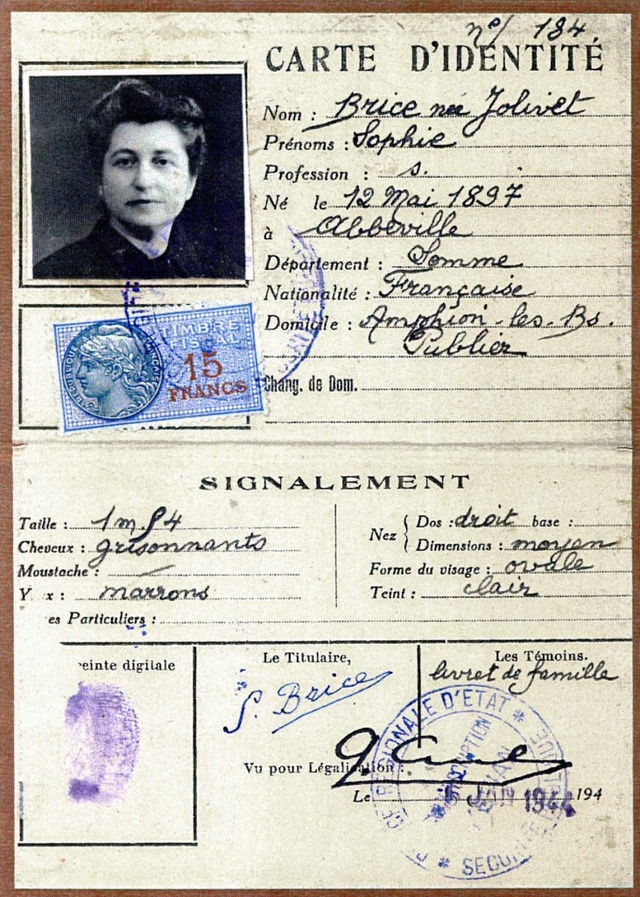 nº/ 134
CARTE D'IDENTITÉ
Nom : Brice née Jolivet
Prénoms : Sophie
Profession : s.
Né le 12 Mai 1897
à Abbeville
Département : Somme
Nationalité : Française
Domicile : Amphion-les-Bs.
Publier
TIMBRE
FISCAL
15
FRANCS
Chang. de Dom.
SIGNALEMENT
Taille : 1m54
Cheveux : grisonnants
Moustache :
Y x : marrons
es Particuliers :
Nez
Dos : droit base :
Dimensions : moyen
Forme du visage : ovale
Teint : clair
einte digitale
Le Titulaire,
S. Brice
Les Témoins.
livret de famille
Vu pour Légalisation :
Le 1944 194
D'ETAT